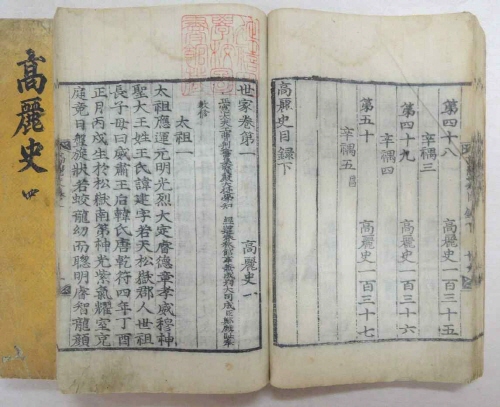 第四十八 高麗史一百三十五
辛禑三
第四十九 高麗史一百三十六
辛禑四
第五十 高麗史一百三十七
辛禑五 昌
高麗史目録下
世家卷第一 高麗史一
敎修
太祖一
太祖應運元明光烈大定睿德章孝威穆神
聖大王姓王氏諱建字若天松嶽郡人世祖
長子母曰威肅王后韓氏唐乾符四年丁酉
正月丙戌生於松嶽南第神光紫氣耀室充
庭竟日盤旋狀若蛟龍幼而聰明睿智龍顔
高麗史 四